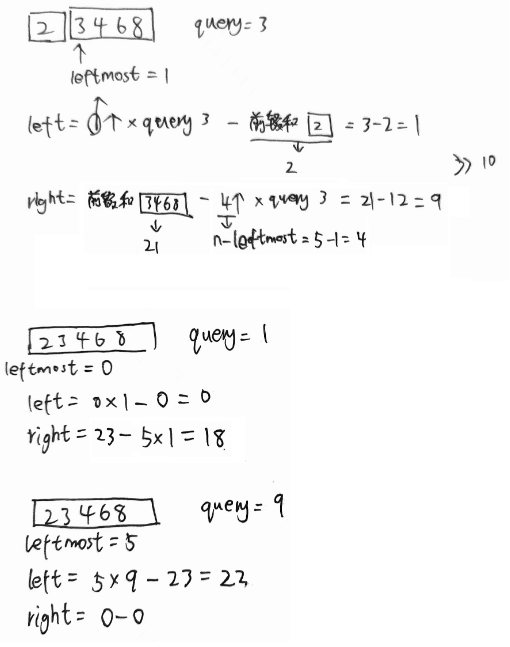 2 3 4 6 8 query = 3
↑
leftmost = 1
left = 1个 × query 3 - 前缀和 2 = 3-2 = 1
↓
2
⇒ 10
right = 前缀和 3468 - 4个 × query 3 = 21-12 = 9
↓ ↓
21 n-leftmost = 5-1 = 4
2 3 4 6 8 query = 1
leftmost = 0
left = 0×1-0 = 0
right = 23-5×1 = 18
2 3 4 6 8 query = 9
leftmost = 5
left = 5×9-23 = 22
right = 0-0